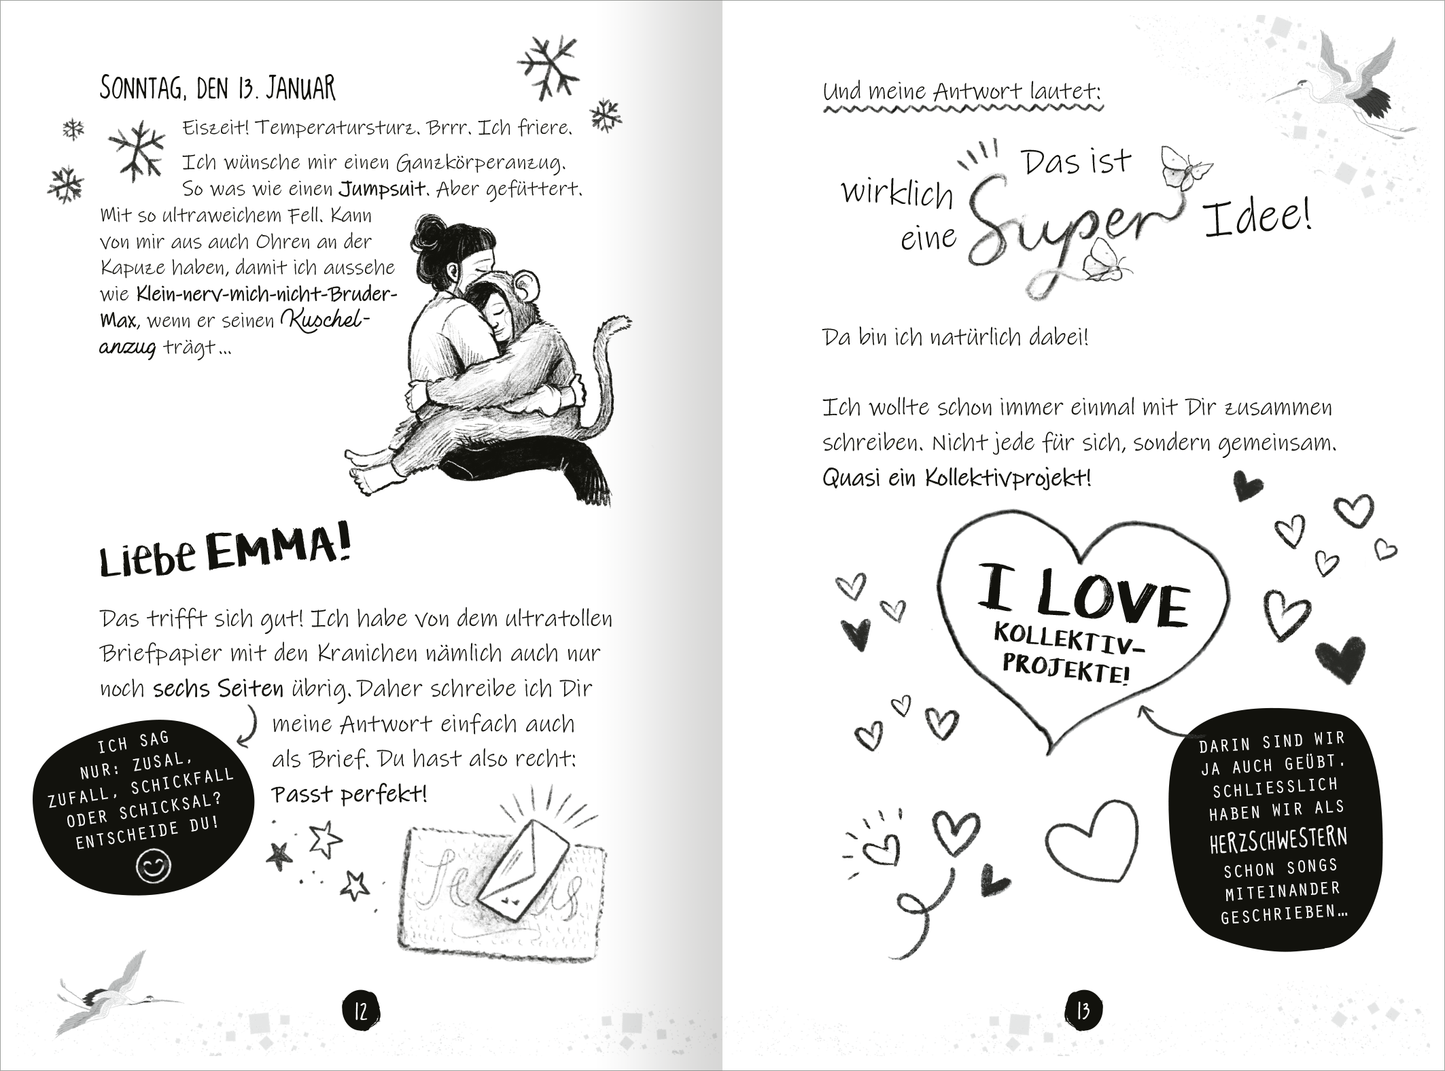 SONNTAG, DEN 13. JANUAR
Eiszeit! Temperatursturz. Brrr. Ich friere.
Ich wünsche mir einen Ganzkörperanzug.
So was wie einen Jumpsuit. Aber gefüttert.
Mit so ultraweichem Fell. Kann
von mir aus auch Ohren an der
Kapuze haben, damit ich aussehe
wie Klein-nerv-mich-nicht-Bruder-
Max, wenn er seinen Kuschel-
anzug trägt...
Liebe EMMA!
Das trifft sich gut! Ich habe von dem ultratollen
Briefpapier mit den Kranichen nämlich auch nur
noch sechs Seiten übrig. Daher schreibe ich Dir
meine Antwort einfach auch
als Brief. Du hast also recht:
Passt perfekt!
ICH SAG
NUR: ZUSAL,
ZUFALL, SCHICKFALL
ODER SCHICKSAL?
ENTSCHEIDE DU!
12
Und meine Antwort lautet:
Das ist
wirklich
eine
Super
Idee!
Da bin ich natürlich dabei!
Ich wollte schon immer einmal mit Dir zusammen
schreiben. Nicht jede für sich, sondern gemeinsam.
Quasi ein Kollektivprojekt!
I LOVE
KOLLEKTIV-
PROJEKTE!
DARIN SIND WIR
JA AUCH GEÜBT.
SCHLIESSLICH
HABEN WIR ALS
HERZSCHWESTERN
SCHON SONGS
MITEINANDER
GESCHRIEBEN...
13